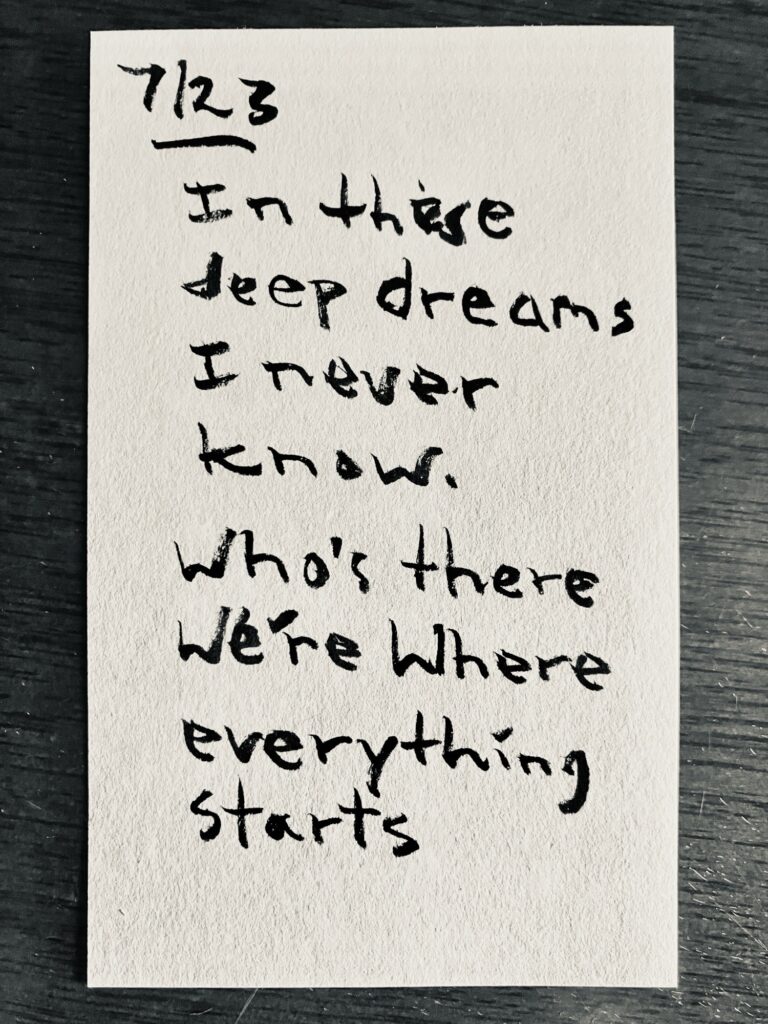 7/23
In these
deep dreams
I never
know.
Who's there
We're Where
everything
starts